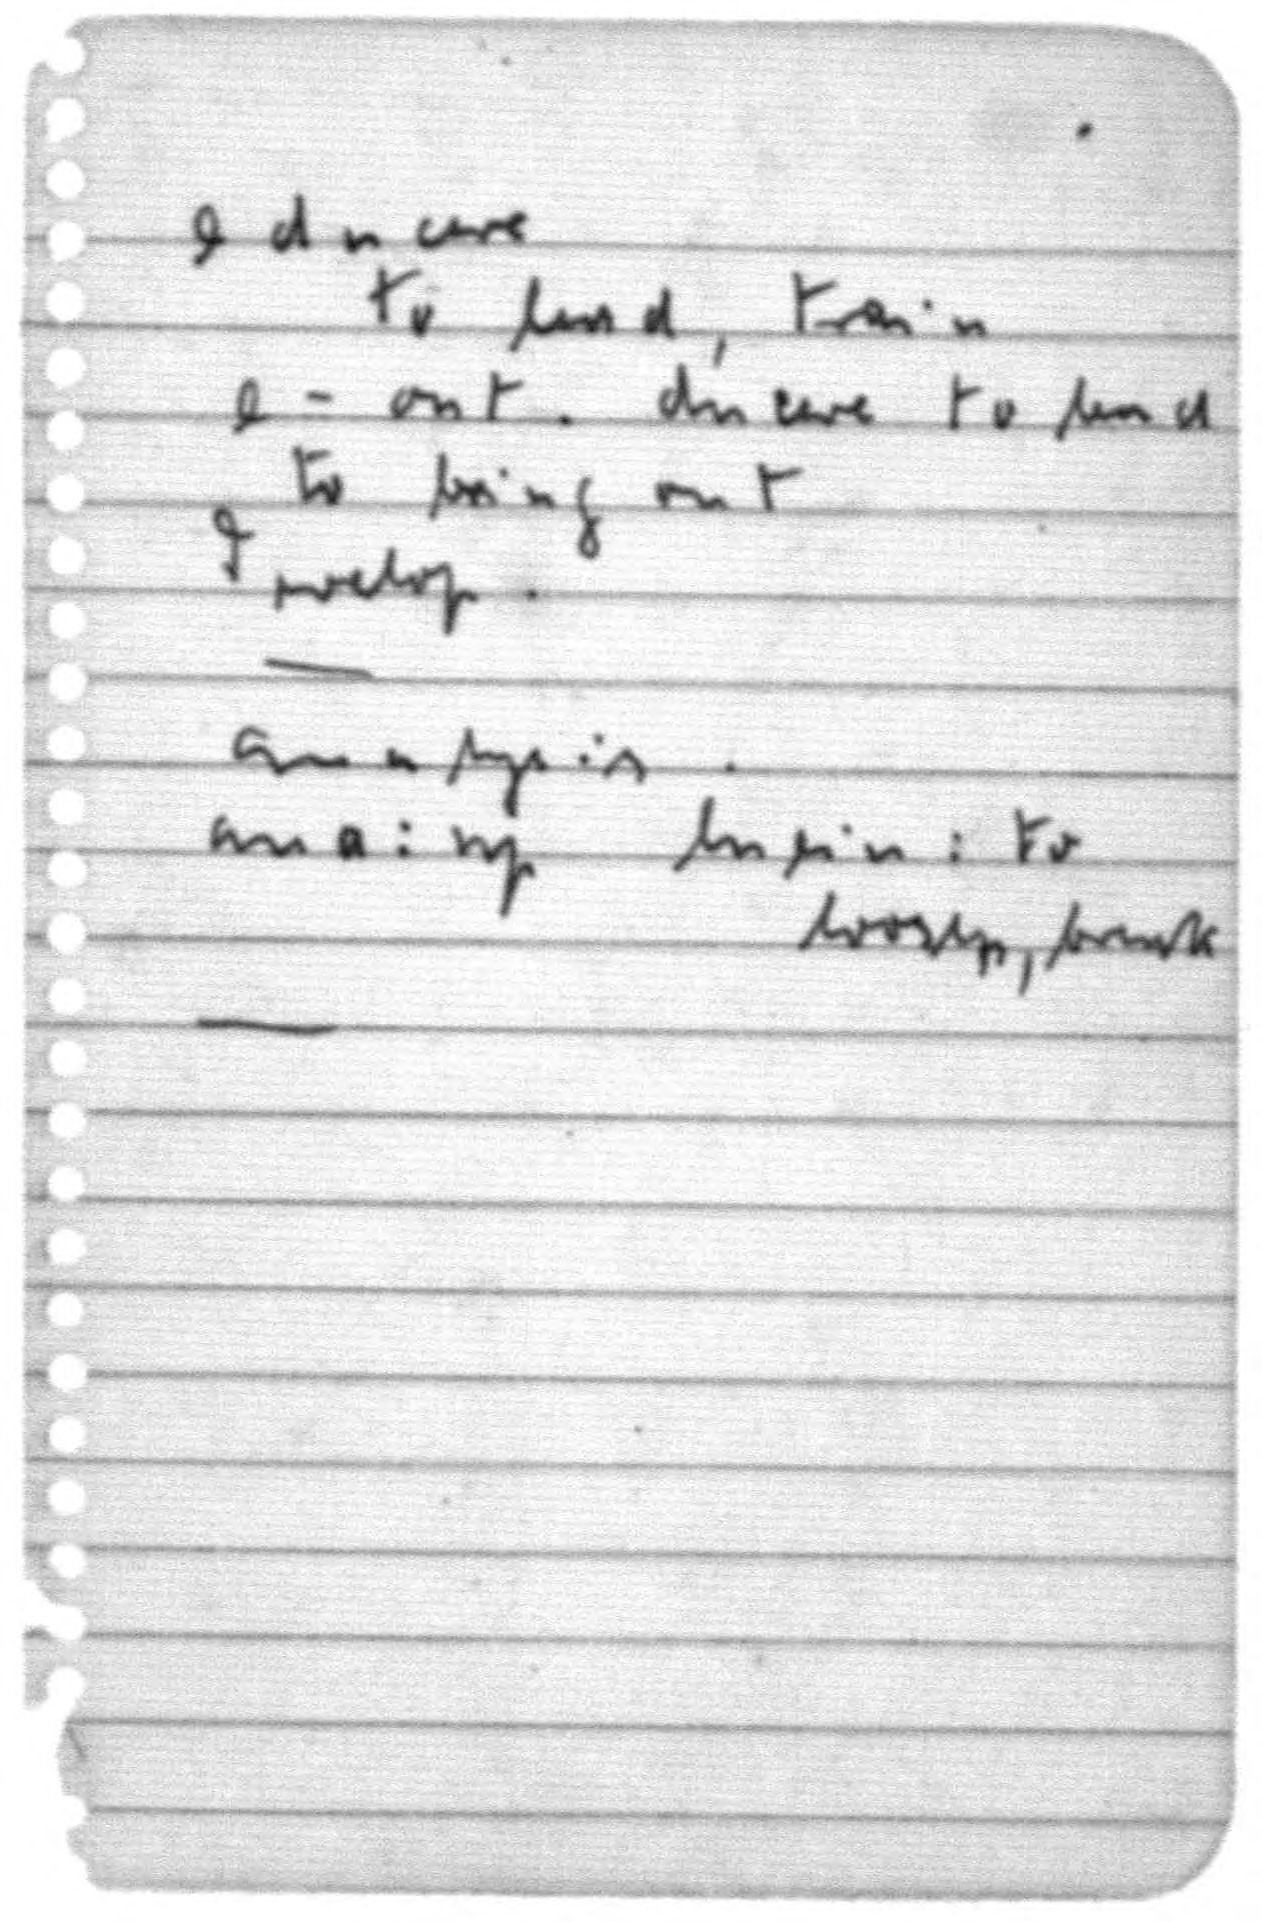 educere
to lead, train
e - out. ducere to lead
to bring out
develop.
analysis.
ana: up lusein: to
loosen, break